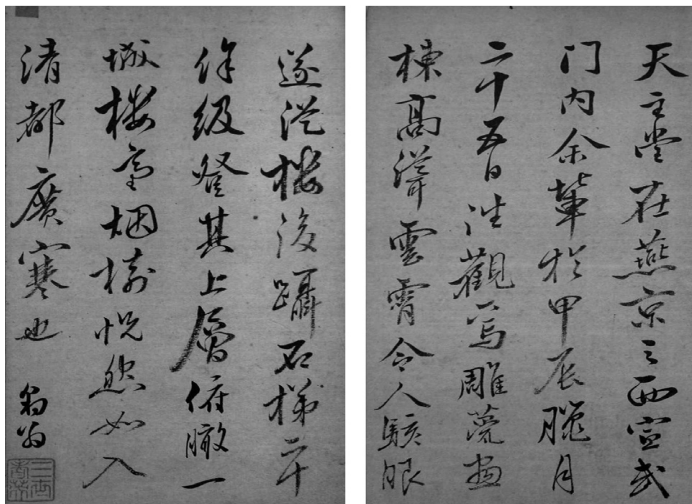 天主堂在燕京之西宣武
门内余輩於甲辰臘月
二十五日往觀焉雕甍畫
棟高聳雲霄令人駭眼
遂從楼後躡石梯二十
馀级登其上層俯瞰一
城楼臺烟树恍然如入
清都廣寒也